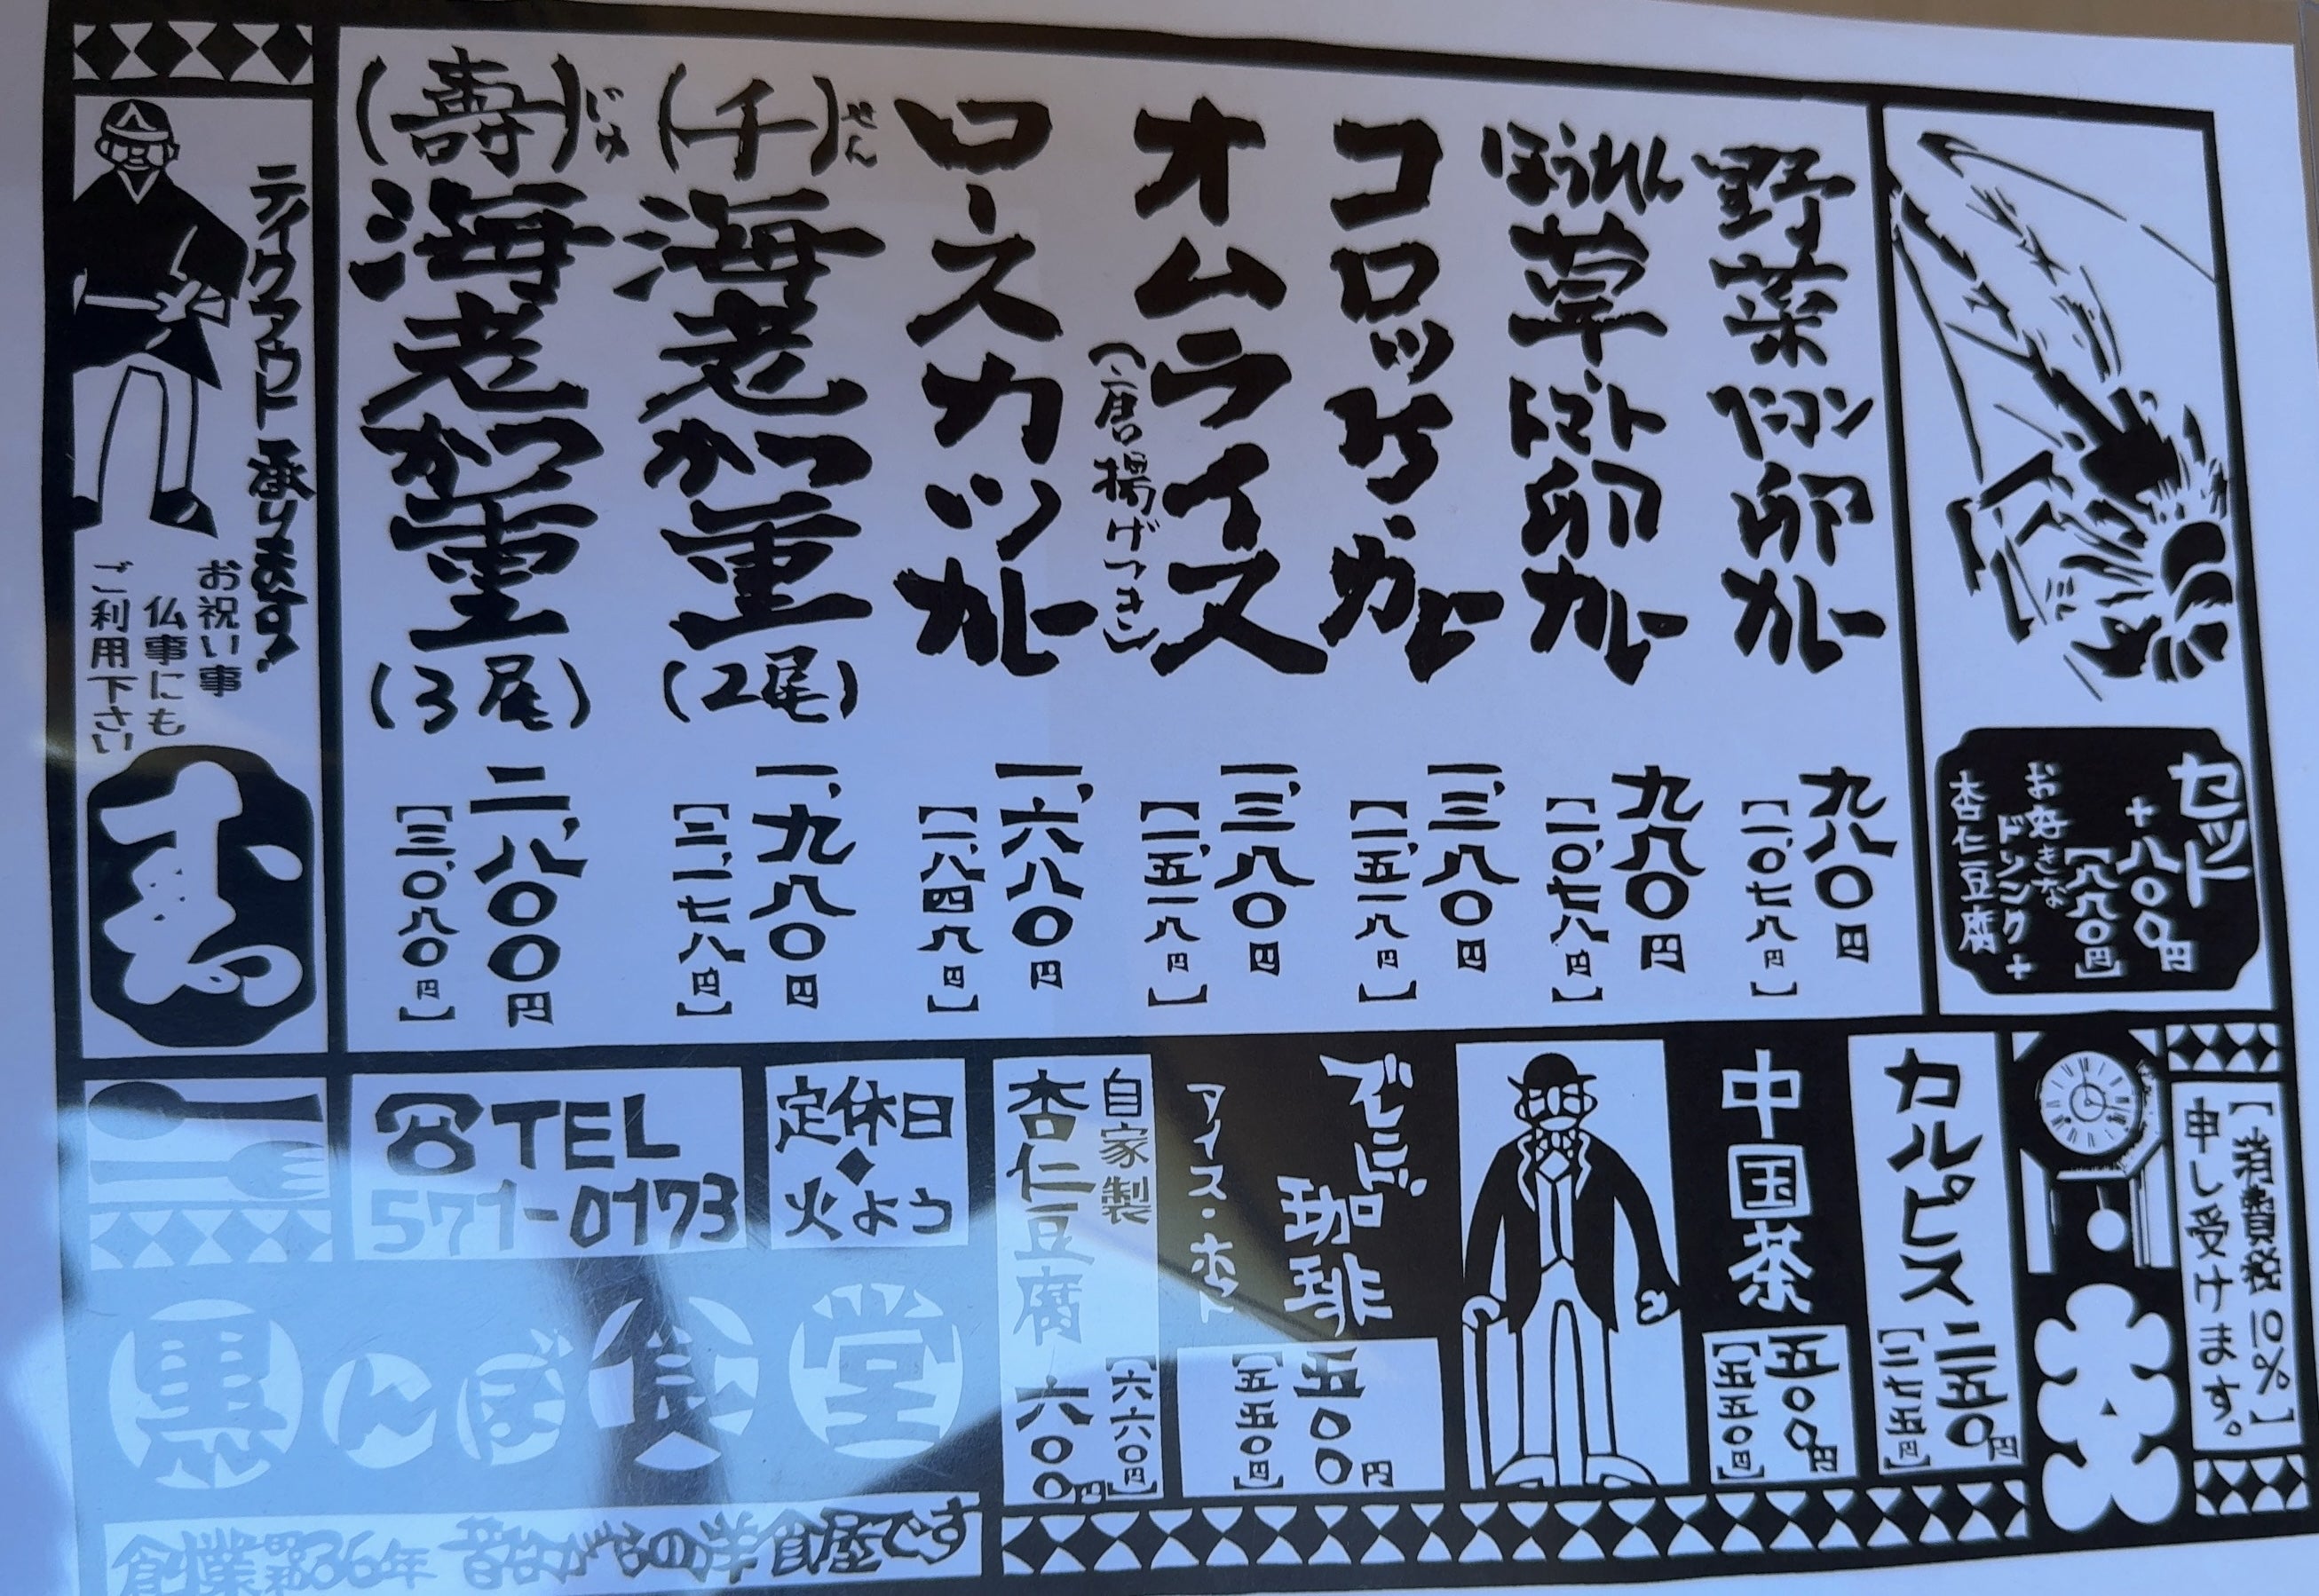 セット
+八〇〇円
【八八〇円】
お好きな
ドリンク+
杏仁豆腐
野菜ベーコン卵カレー
九八〇円
【一、〇七八円】
ほうれん草トマト卵カレー
九八〇円
【一、〇七八円】
コロッケカレー
一、三八〇円
【一、五一八円】
オムライス
(唐揚げつき)
一、三八〇円
【一、五一八円】
ロースカツカレー
一、六八〇円
【一、八四八円】
(千)せん
海老かつ重
(2尾)
一、九八〇円
【二、一七八円】
(壽)じゅ
海老かつ重
(3尾)
二、八〇〇円
【三、〇八〇円】
テイクアウト承ります!
お祝い事
仏事にも
ご利用下さい
【消費税10%】
申し受けます。
カルピス
二五〇円
【二七五円】
中国茶
五〇〇円
【五五〇円】
珈琲
アイス・ホット
五〇〇円
【五五〇円】
自家製
杏仁豆腐
六〇〇円
【六六〇円】
定休日
◆
火よう
☎TEL
571-0173
黒んぼ食堂
創業昭和36年 昔ながらの洋食屋です